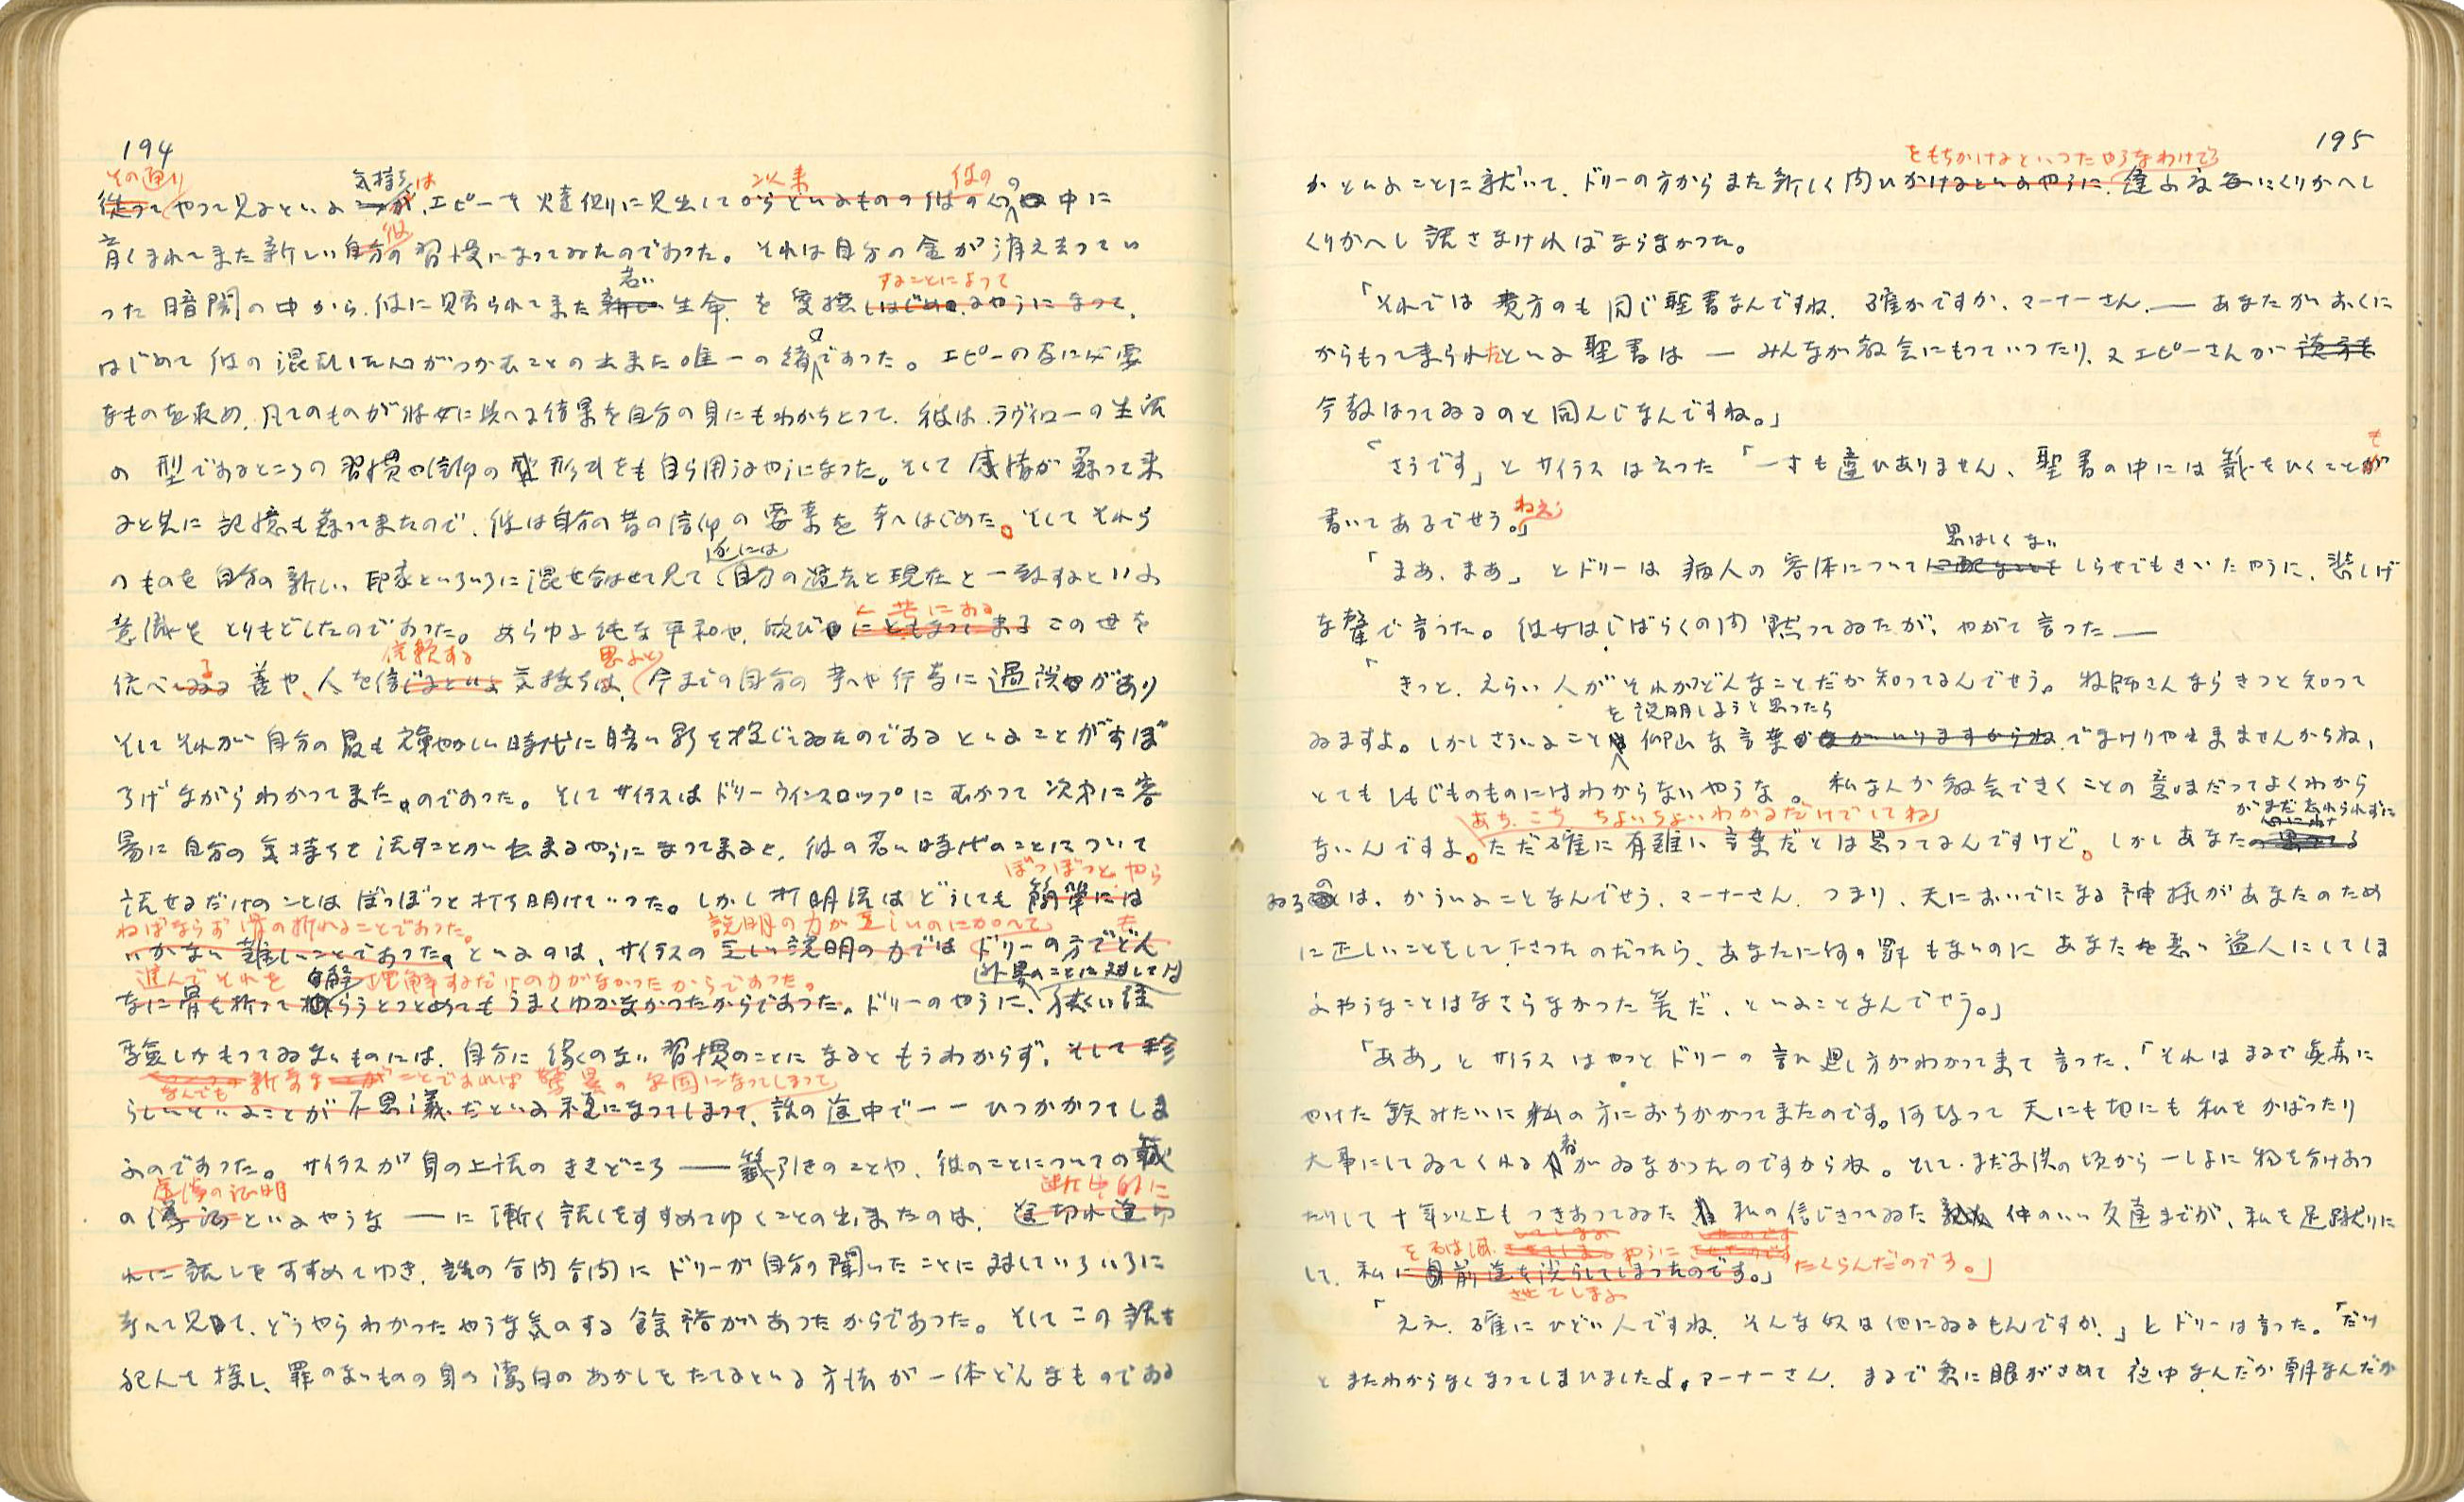 194
その通り 気持ちは 以来 彼の
従つてやつて見るといふ、エピーを煖炉側に見出してからといふもの彼の心の中に
育くまれてきた新しい自分の習慣になつてゐたのであつた。それは自分の金が消え去つてい
彼 若い することによつて
つた暗闇の中から、彼に見舞られてきた新しい生命を愛撫しはじめるやうになつて、
はじめて彼の混乱した心がつかむことの出来た唯一の緒口であつた。エピーの為に必要
なものを求め、凡てのものが彼女に与へる結果を自分の身にもわかちとつて、彼は、ラヴィローの生活
の型であるところの習慣や信仰の形式をも自ら用うるやうになつた。そして感情が蘇つて来
ると共に記憶も蘇つて来たので、彼は自分の昔の信仰の要素を考へはじめた。そしてそれら
遂には
のものを自分の新しい印象といろいろに混ぜ合はせて見て、自分の過去と現在と一致するといふ
意識をとりもどしたのであつた。あらゆる純な平和や、歓びにともなつて来るこの世を
と共にある
信頼する 思ふと
統べゐる善や、人を信じるといふ気持ちは、今までの自分の考へや行為に過誤があり
る
そしてそれが自分の最も輝やかしい時代に暗い影を投じてゐたのであるといふことがおぼ
ろげながらわかつてきたのであつた。そしてサイラスはドリー・ウインスロップにむかつて次第に容
易に自分の気持ちを話すことが出来るやうになつてきると、彼の若い時代のことについて
話せるだけのことはぽつぽつと打ち明けていつた。しかし打明話はどうしても簡単には
ぽつぽつとやら
ねばならず骨の折れることであつた。 説明の力が乏しいのに加へて
いかない難しいことであつた。といふのは、サイラスの乏しい説明の力ではドリーの方でどん
進んでそれを理解するだけの力がなかつたからであつた。 外界のことに対しては
なに骨を折つて解らうとつとめてもうまくゆかなかつたからであつた。ドリーのやうに、狭くい経
験しかもつてゐないものには、自分に縁のない習慣のことになるともうわからず、そして珍
なんでも新奇なことであれば驚異の原因になつてしまつて
らしいといふことが不思議だといふ種になつてしまつて、話の途中で一一ひつかかつてしま
ふのであつた。サイラスが身の上話のききどころ――籤引きのことや、彼のことについての
虚偽の証明 断片的に
の といふやうな――に漸く話しをすすめてゆくことの出来たのは、途切れ途切
れに話しをすすめてゆき、話の合間合間にドリーが自分の聞いたことに対していろいろに
考へて見て、どうやらわかつたやうな気のする余裕があつたからであつた。そしてこの話も
犯人を探し、罪のないものの身の潔白のあかしをたてるといふ方法が一体どんなものである
195
をもちかけるといつたやうなわけで
かといふことに就いて、ドリーの方からまた新しく問ひかけるといふやうに、逢ふ度毎にくりかへし
くりかへし話さなければならなかつた。
「それでは貴方のも同じ聖書なんですね、確かですか、マーナーさん、――あなたがおくに
からもつて来られたといふ聖書は――みんなが教会にもつていつたり、又エピーさんが読み方を
今教はつてゐるのと同んじなんですね。」
「さうです」とサイラスは云つた「一寸も違ひありません、聖書の中には籤をひくことが
も
書いてあるでせう。」
ねえ
思はしくない
「まあ、まあ」とドリーは病人の容体について しらせでもきいたやうに、悲しげ
な声で言うた。彼女はしばらくの間黙つてゐたが、やがて言つた――
「きつと、えらい人がそれがどんなことだか知つてるんでせう。牧師さんならきつと知つて
を説明しようと思つたら
ゐますよ。しかしさういふことは仰山な言葉がいりますからね でなけりや出来ませんからね、
とてもしもじものものにはわからないやうな。私なんか教会できくことの意味だつてよくわから
あちこちちよいちよいわかるだけでしてね がまだ忘れられずに
ないんですよ。ただ確に有難い言葉だとは思つてるんですけど。しかしあなたの思つてる
ゐるのは、かういふことなんでせう、マーナーさん、つまり、天においでになる神様があなたのため
に正しいことをして下さつたのだつたら、あなたに何の罪もないのにあなたを悪い盗人にしてしま
ふやうなことはなさらなかつた筈だ、といふことなんでせう。」
「ああ」とサイラスはやつとドリーの言ひ廻し方がわかつて来て言つた、「それはまるで真赤に
やけた鉄みたいに私の方におちかかつてきたのです。何故つて天にも地にも私をかばつたり
大事にしてゐてくれる者がゐなかつたのですからね。そして、まだ子供の頃から一しよに物を分けあつ
たりして十年以上もつきあつてゐた 私の信じきつてゐた仲のいい友達までが、私を足蹴りに
やうに たくらんだのです。」
して、私に自前途を誤らしてしまつたのです。」
させてしまふ
「ええ、確にひどい人ですね、そんな奴は他にゐるもんですか、」とドリーは言つた。「だけ
どまたわからなくなつてしまひましたよ、マーナーさん、まるで急に眼がさめて夜中なんだか朝なんだか